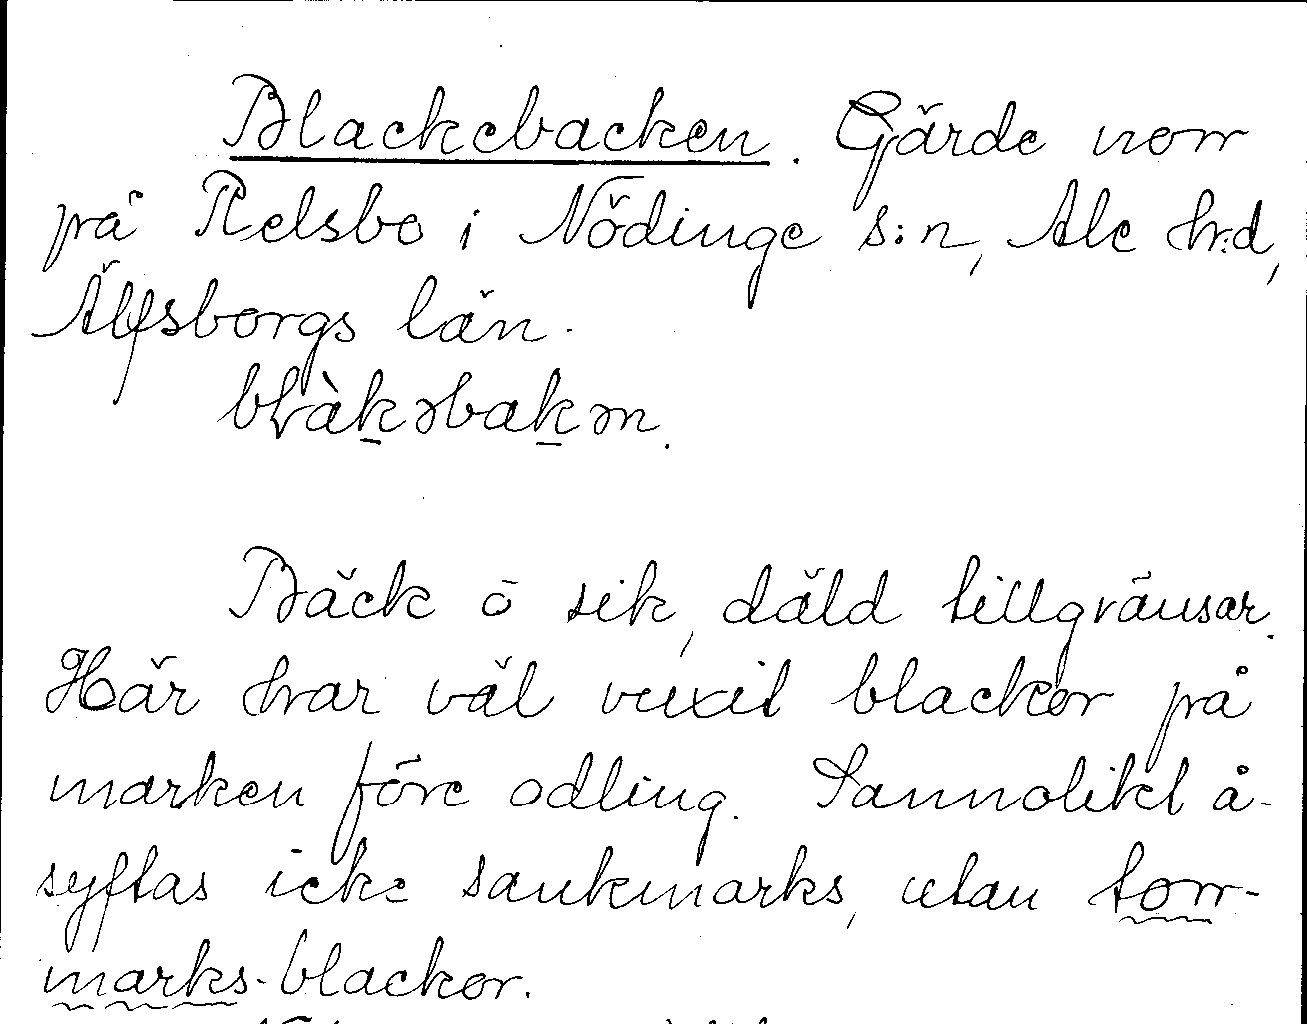 Blackebacken. Gärde norr
på Relsbo i Nödinge s:n, Ale h:d,
Älfsborgs län.
Bäck o sik, däld tillgränsar.
Här har väl vuxit blackor på
marken före odling. Sannolikt å-
syftas icke sankmarks, utan torr-
marks-blackor.